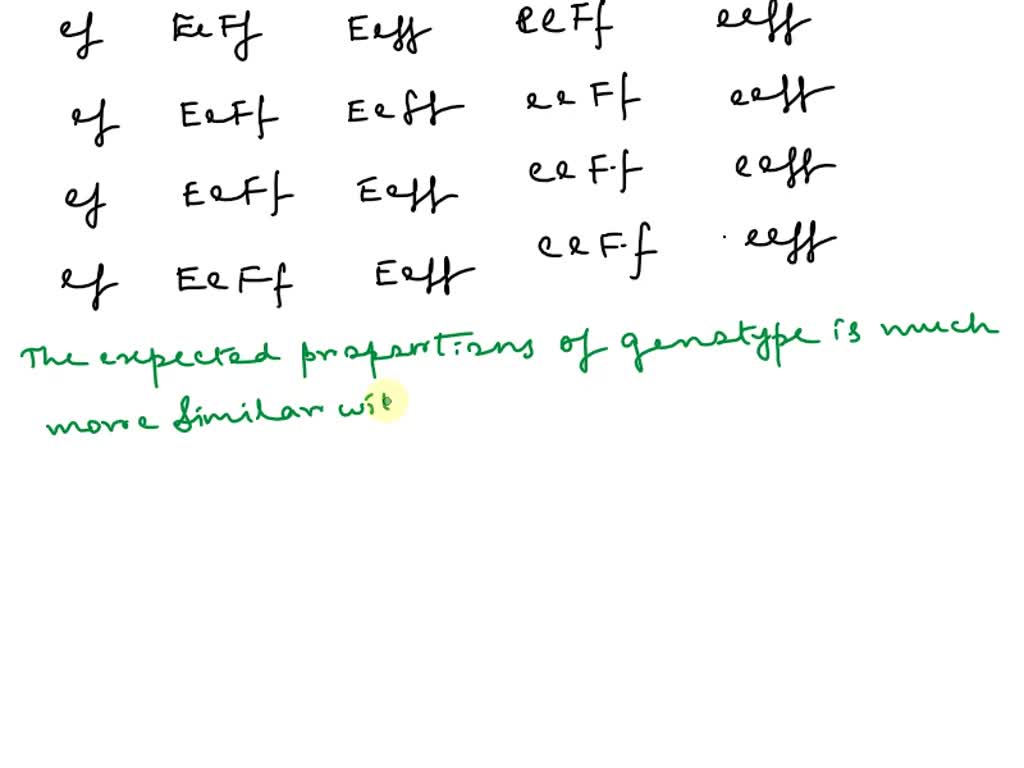 ef EeFf Eeff eeFf eeff
ef EeFf Eeff eeFf eeff
ef EeFf Eeff eeF.f eeff
ef EeFf Eeff eeF.f eeff
The expected proportions of genotype is much
more similar wit